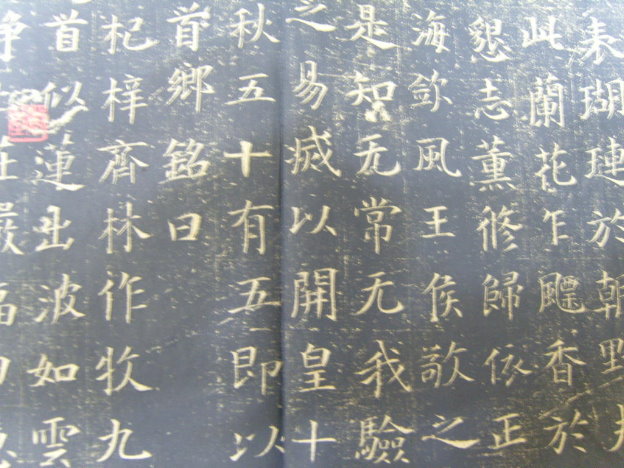 表瑚璉於朝野
此蘭花乍飃香於
懇志薰修歸依正
海欽風王侯歌之
是知无常无我驗
之易滅以開皇十
秋五十有五即以
首鄉銘曰
杞梓齊林作牧九
首似蓮出波如雲